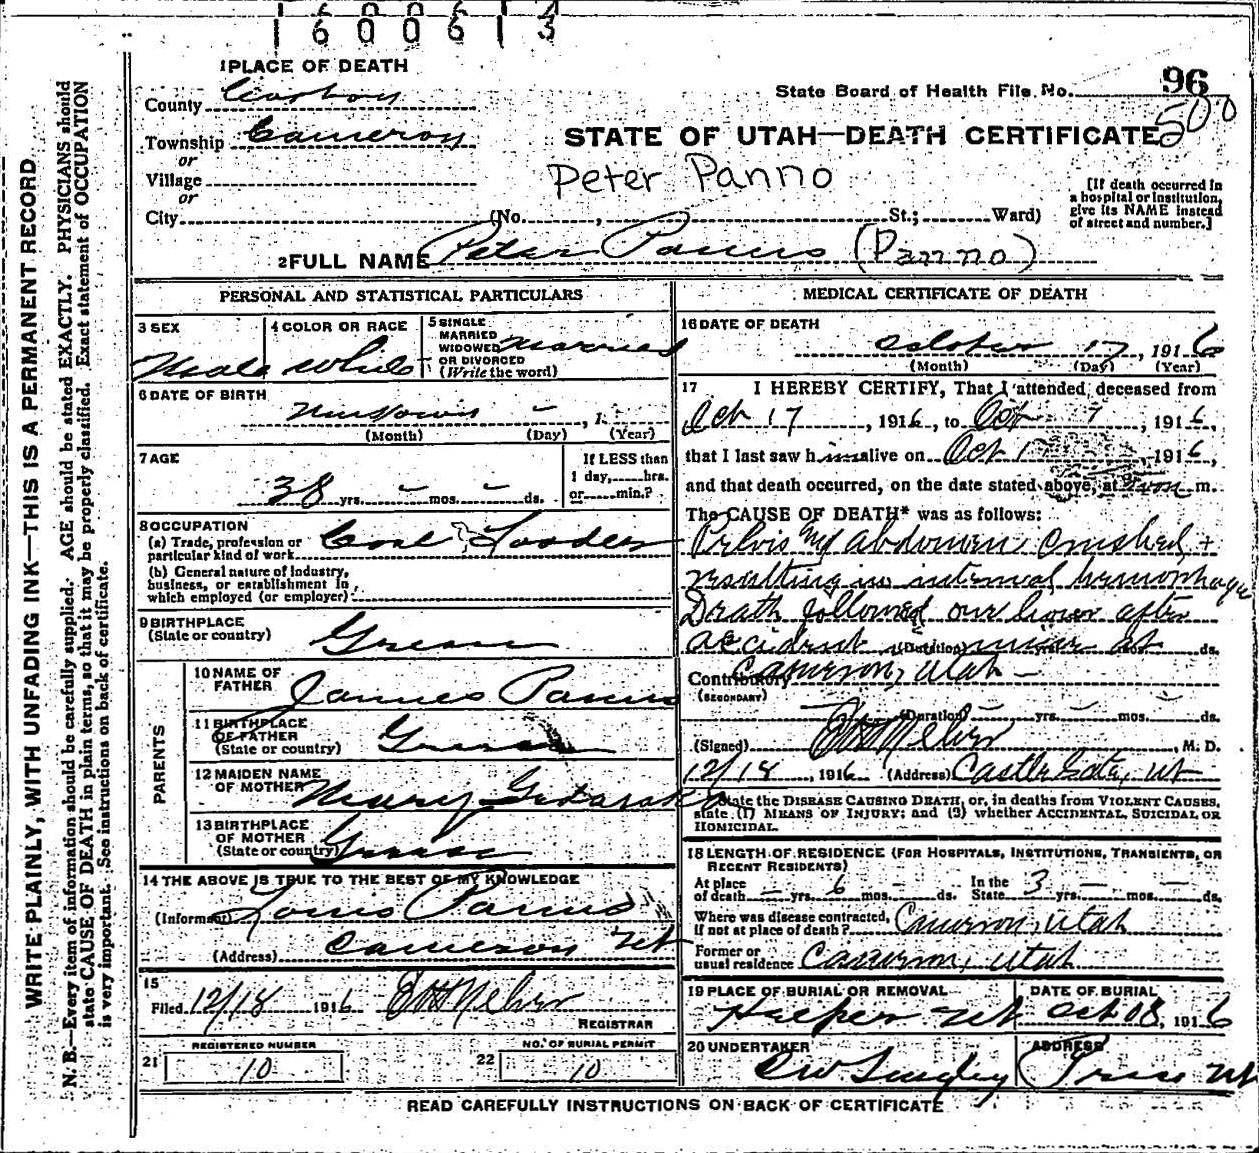 1600613
96
500
1 PLACE OF DEATH
County Carbon
State Board of Health File No.
Township Cameron
or
STATE OF UTAH—DEATH CERTIFICATE
Village
or
Peter Panno
[If death occurred in a hospital or institution, give its NAME instead of street and number.]
City (No. , St.; Ward)
2 FULL NAME Peter Panus (Panno)
PERSONAL AND STATISTICAL PARTICULARS
3 SEX Male
4 COLOR OR RACE White
5 SINGLE MARRIED WIDOWED OR DIVORCED (Write the word) Married
6 DATE OF BIRTH Unknown - , 1
(Month) (Day) (Year)
7 AGE
38 yrs. - mos. - ds.
If LESS than 1 day, hrs. or min.?
8 OCCUPATION
(a) Trade, profession or particular kind of work Coal Loader
(b) General nature of industry, business, or establishment in which employed (or employer)
9 BIRTHPLACE (State or country) Greece
PARENTS
10 NAME OF FATHER James Panus
11 BIRTHPLACE OF FATHER (State or country) Greece
12 MAIDEN NAME OF MOTHER Mary
13 BIRTHPLACE OF MOTHER (State or country) Greece
14 THE ABOVE IS TRUE TO THE BEST OF MY KNOWLEDGE
(Informant) Louis Panus
(Address) Cameron Ut
15
Filed 12/18 1916
REGISTRAR
21 REGISTERED NUMBER 10
22 NO. OF BURIAL PERMIT 10
MEDICAL CERTIFICATE OF DEATH
16 DATE OF DEATH
October 17, 1916
(Month) (Day) (Year)
17 I HEREBY CERTIFY, That I attended deceased from
Oct 17, 1916, to Oct 7, 1916,
that I last saw him alive on Oct 1 1916,
and that death occurred, on the date stated above, at m.
The CAUSE OF DEATH* was as follows:
Pelvis and Abdomen crushed +
resulting in internal hemorrhage
Death followed one hour after
accident in mine at
(Duration) yrs. mos. ds.
Cameron, Utah -
Contributory
(SECONDARY)
(Duration) yrs. mos. ds.
(Signed) , M. D.
12/18, 1916 (Address) Castle Gate, Ut
*State the DISEASE CAUSING DEATH, or, in deaths from VIOLENT CAUSES,
state (1) MEANS OF INJURY; and (2) whether ACCIDENTAL, SUICIDAL OR
HOMICIDAL.
18 LENGTH OF RESIDENCE (FOR HOSPITALS, INSTITUTIONS, TRANSIENTS, OR
RECENT RESIDENTS)
At place of death - yrs. 6 mos. - ds. In the State 3 yrs. - mos. - ds.
Where was disease contracted, if not at place of death? Cameron, Utah
Former or usual residence Cameron, Utah
19 PLACE OF BURIAL OR REMOVAL Helper Ut
DATE OF BURIAL Oct 18, 1916
20 UNDERTAKER
ADDRESS Price Ut
READ CAREFULLY INSTRUCTIONS ON BACK OF CERTIFICATE
WRITE PLAINLY, WITH UNFADING INK—THIS IS A PERMANENT RECORD
N. B.—Every item of information should be carefully supplied. AGE should be stated EXACTLY. PHYSICIANS should
state CAUSE OF DEATH in plain terms, so that it may be properly classified. Exact statement of OCCUPATION
is very important. See instructions on back of certificate.